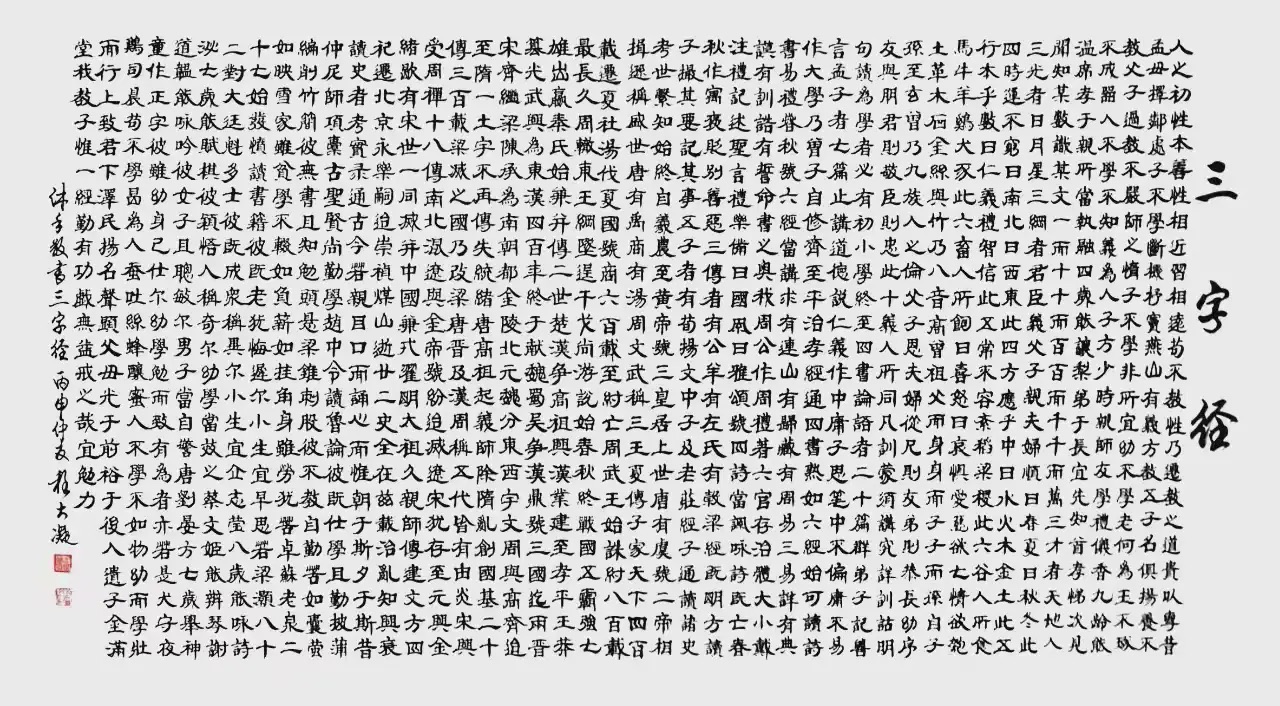 三字經
人之初性本善性相近習相遠苟不教性乃遷教之道貴以專昔
孟母擇鄰處子不學斷機杼竇燕山有義方教五子名俱揚養不
教父之過教不嚴師之惰子不學非所宜幼不學老何為玉不琢
不成器人不學不知義為人子方少時親師友學禮儀香九齡能
溫席孝于親所當執融四歲能讓梨弟于長宜先知首孝悌次見
聞知某數識某文一而十十而百百而千千而萬三才者天地人
三光者日月星三綱者君臣義父子親夫婦順曰春夏曰秋冬此
四時運不窮曰南北曰西東此四方應乎中曰水火木金土此五
行本乎數曰仁義禮智信此五常不容紊稻梁稷此六谷人所食
馬牛羊鷄犬豕此六畜人所飼曰喜怒曰哀懼愛惡欲七情俱匏
土革木石金絲與竹乃八音高曾祖父而身身而子子而孫自子
孫至玄曾乃九族人之倫父子恩夫婦從兄則友弟則恭長幼序
友與朋君則敬臣則忠此十義人所同凡訓蒙須講究詳訓詁明
句讀為學者必有初小學終至四書論語者二十篇群弟子記善
言孟子者七篇止講道德說仁義作中庸子思筆中不偏庸不易
作大學乃曾子自修齊至平治孝經通四書熟如六經始可讀詩
書易禮春秋號六經當講求有連山有歸藏有周易三易詳有典
謨有訓誥有誓命書之奧我周公作周禮著六官存治體大小戴
注禮記述聖言禮樂備曰國風曰雅頌號四詩當諷咏詩既亡春
秋作寓褒貶別善惡三傳者有公羊有左氏有穀梁經既明方讀
子撮其要記其事五子者有荀揚文中子及老莊經子通讀諸史
考世繫知始終自羲農至黃帝號三皇居上世唐有虞號二帝相
揖遜稱盛世夏有禹商有湯周文武稱三王夏傳子家天下四百
載遷夏社湯伐夏國號商六百載至紂亡周武王始誅紂八百載
最長久周轍東王綱墜逞干戈尚游說始春秋終戰國五霸強七
雄出嬴秦氏始兼并傳二世楚漢爭高祖興漢業建至孝平王莽
篡光武興為東漢四百年終于献魏蜀吳爭漢鼎號三國迄兩晉
宋齊繼梁陳承為南朝都金陵北元魏分東西宇文周與高齊迨
至隋一土宇不再傳失統緒唐高祖起義師除隋亂創國基二十
傳三百載梁滅之國乃改梁唐晉及漢周稱五代皆有由炎宋興
受周禪十八傳南北混遼與金帝號紛迨滅遼宋犹存至元興金
緒歇有宋世一同滅并中國兼戎翟明太祖久親師傳建文方四
祀遷北京永樂嗣迨崇禎煤山逝廿二史全在兹載治亂知興衰
讀史者考實录通古今若親目口而誦心而惟朝于斯夕于斯昔
仲尼師項橐古聖賢尚勤學趙中令讀魯論彼既仕學且勤披蒲
編削竹簡彼無書且知勉頭懸梁錐刺股彼不教自勤苦如囊螢
如映雪家雖貧學不輟如負薪如挂角身雖勞犹苦卓蘇老泉二
十七始發憤讀書籍彼既老犹悔遲尔小生宜早思若梁灝八十
二對大廷魁多士彼既成眾稱異尔小生宜立志瑩八歲能咏詩
泌七歲能賦棋彼穎悟人稱奇尔幼學當效之蔡文姬能辨琴謝
道韞能咏吟彼女子且聰敏尔男子當自警唐劉晏方七歲舉神
童作正字彼雖幼身己仕尔幼學勉而致有為者亦若是犬守夜
鷄司晨苟不學曷為人蚕吐絲蜂釀蜜人不學不如物幼而學壯
而行上致君下澤民揚名聲顯父母光于前裕于後人遺子金滿
堂我教子惟一經勤有功戲無益戒之哉宜勉力
沐手敬書三字經 丙申仲夏